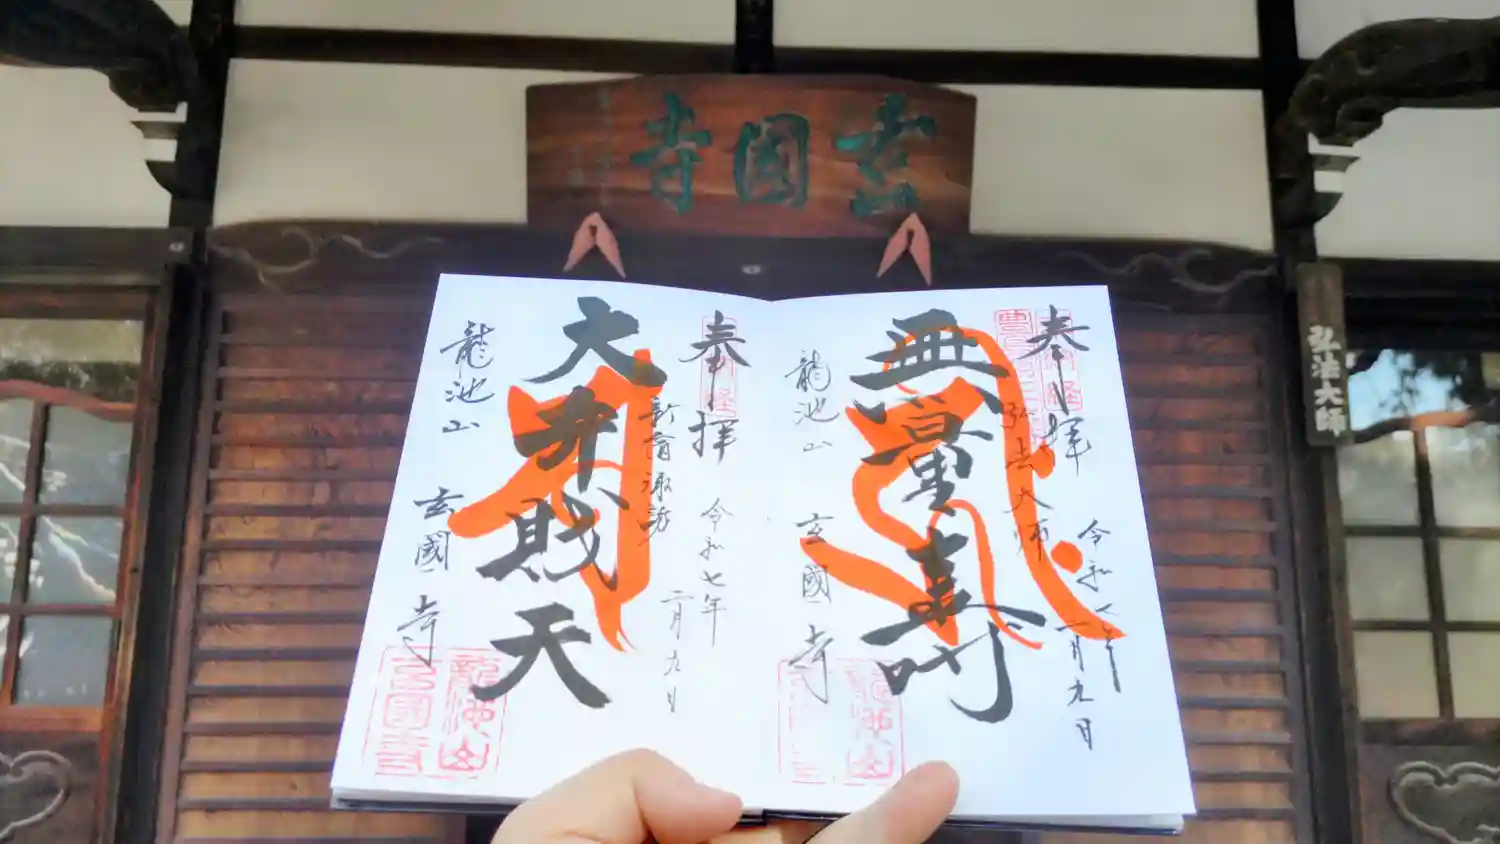 玄國寺
弘法大師
奉拜
弘法大师
令和七年
二月九日
無量寿
龍池山
玄國寺
龍池山
奉拝
新宿諏訪
令和七年
二月九日
大弁財天
龍池山
玄國寺
龍池山
玄國寺